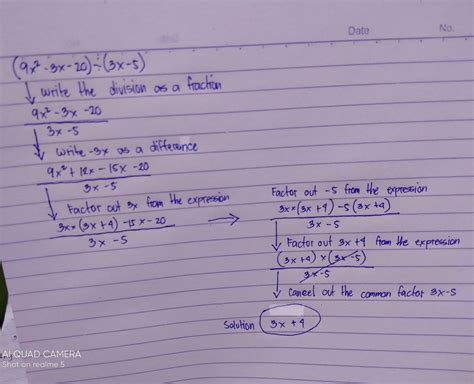 Date
No.
(9x² - 3x - 20) ÷ (3x - 5)
↓ Write the division as a fraction
9x² - 3x - 20
3x - 5
↓ Write -3x as a difference
9x² + 12x - 15x - 20
3x - 5
↓ Factor out 3x from the expression
3x × (3x + 4) - 15x - 20
3x - 5
→
Factor out -5 from the expression
3x × (3x + 4) - 5 (3x + 4)
3x - 5
↓ Factor out 3x + 4 from the expression
(3x + 4) × (3x - 5)
3x - 5
↓ Cancel out the common factor 3x - 5
Solution 3x + 4
AI QUAD CAMERA
Shot on realme 5